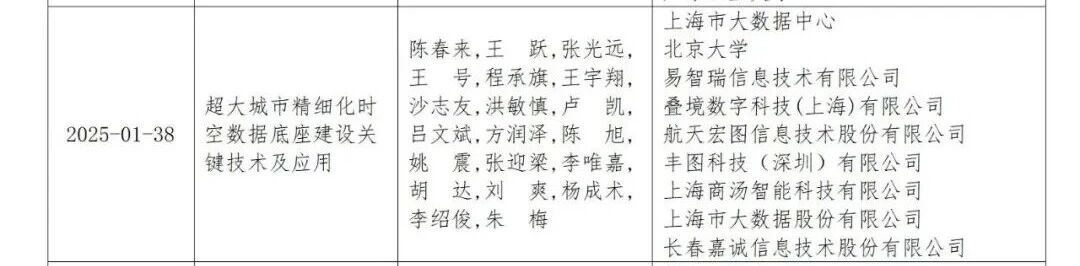 2025-01-38
超大城市精细化时
空数据底座建设关
键技术及应用
陈春来,王　跃,张光远,
王　号,程承旗,王宇翔,
沙志友,洪敏慎,卢　凯,
吕文斌,方润泽,陈　旭,
姚　震,张迎梁,李唯嘉,
胡　达,刘　爽,杨成术,
李绍俊,朱　梅
上海市大数据中心
北京大学
易智瑞信息技术有限公司
叠境数字科技(上海)有限公司
航天宏图信息技术股份有限公司
丰图科技（深圳）有限公司
上海商汤智能科技有限公司
上海市大数据股份有限公司
长春嘉诚信息技术股份有限公司